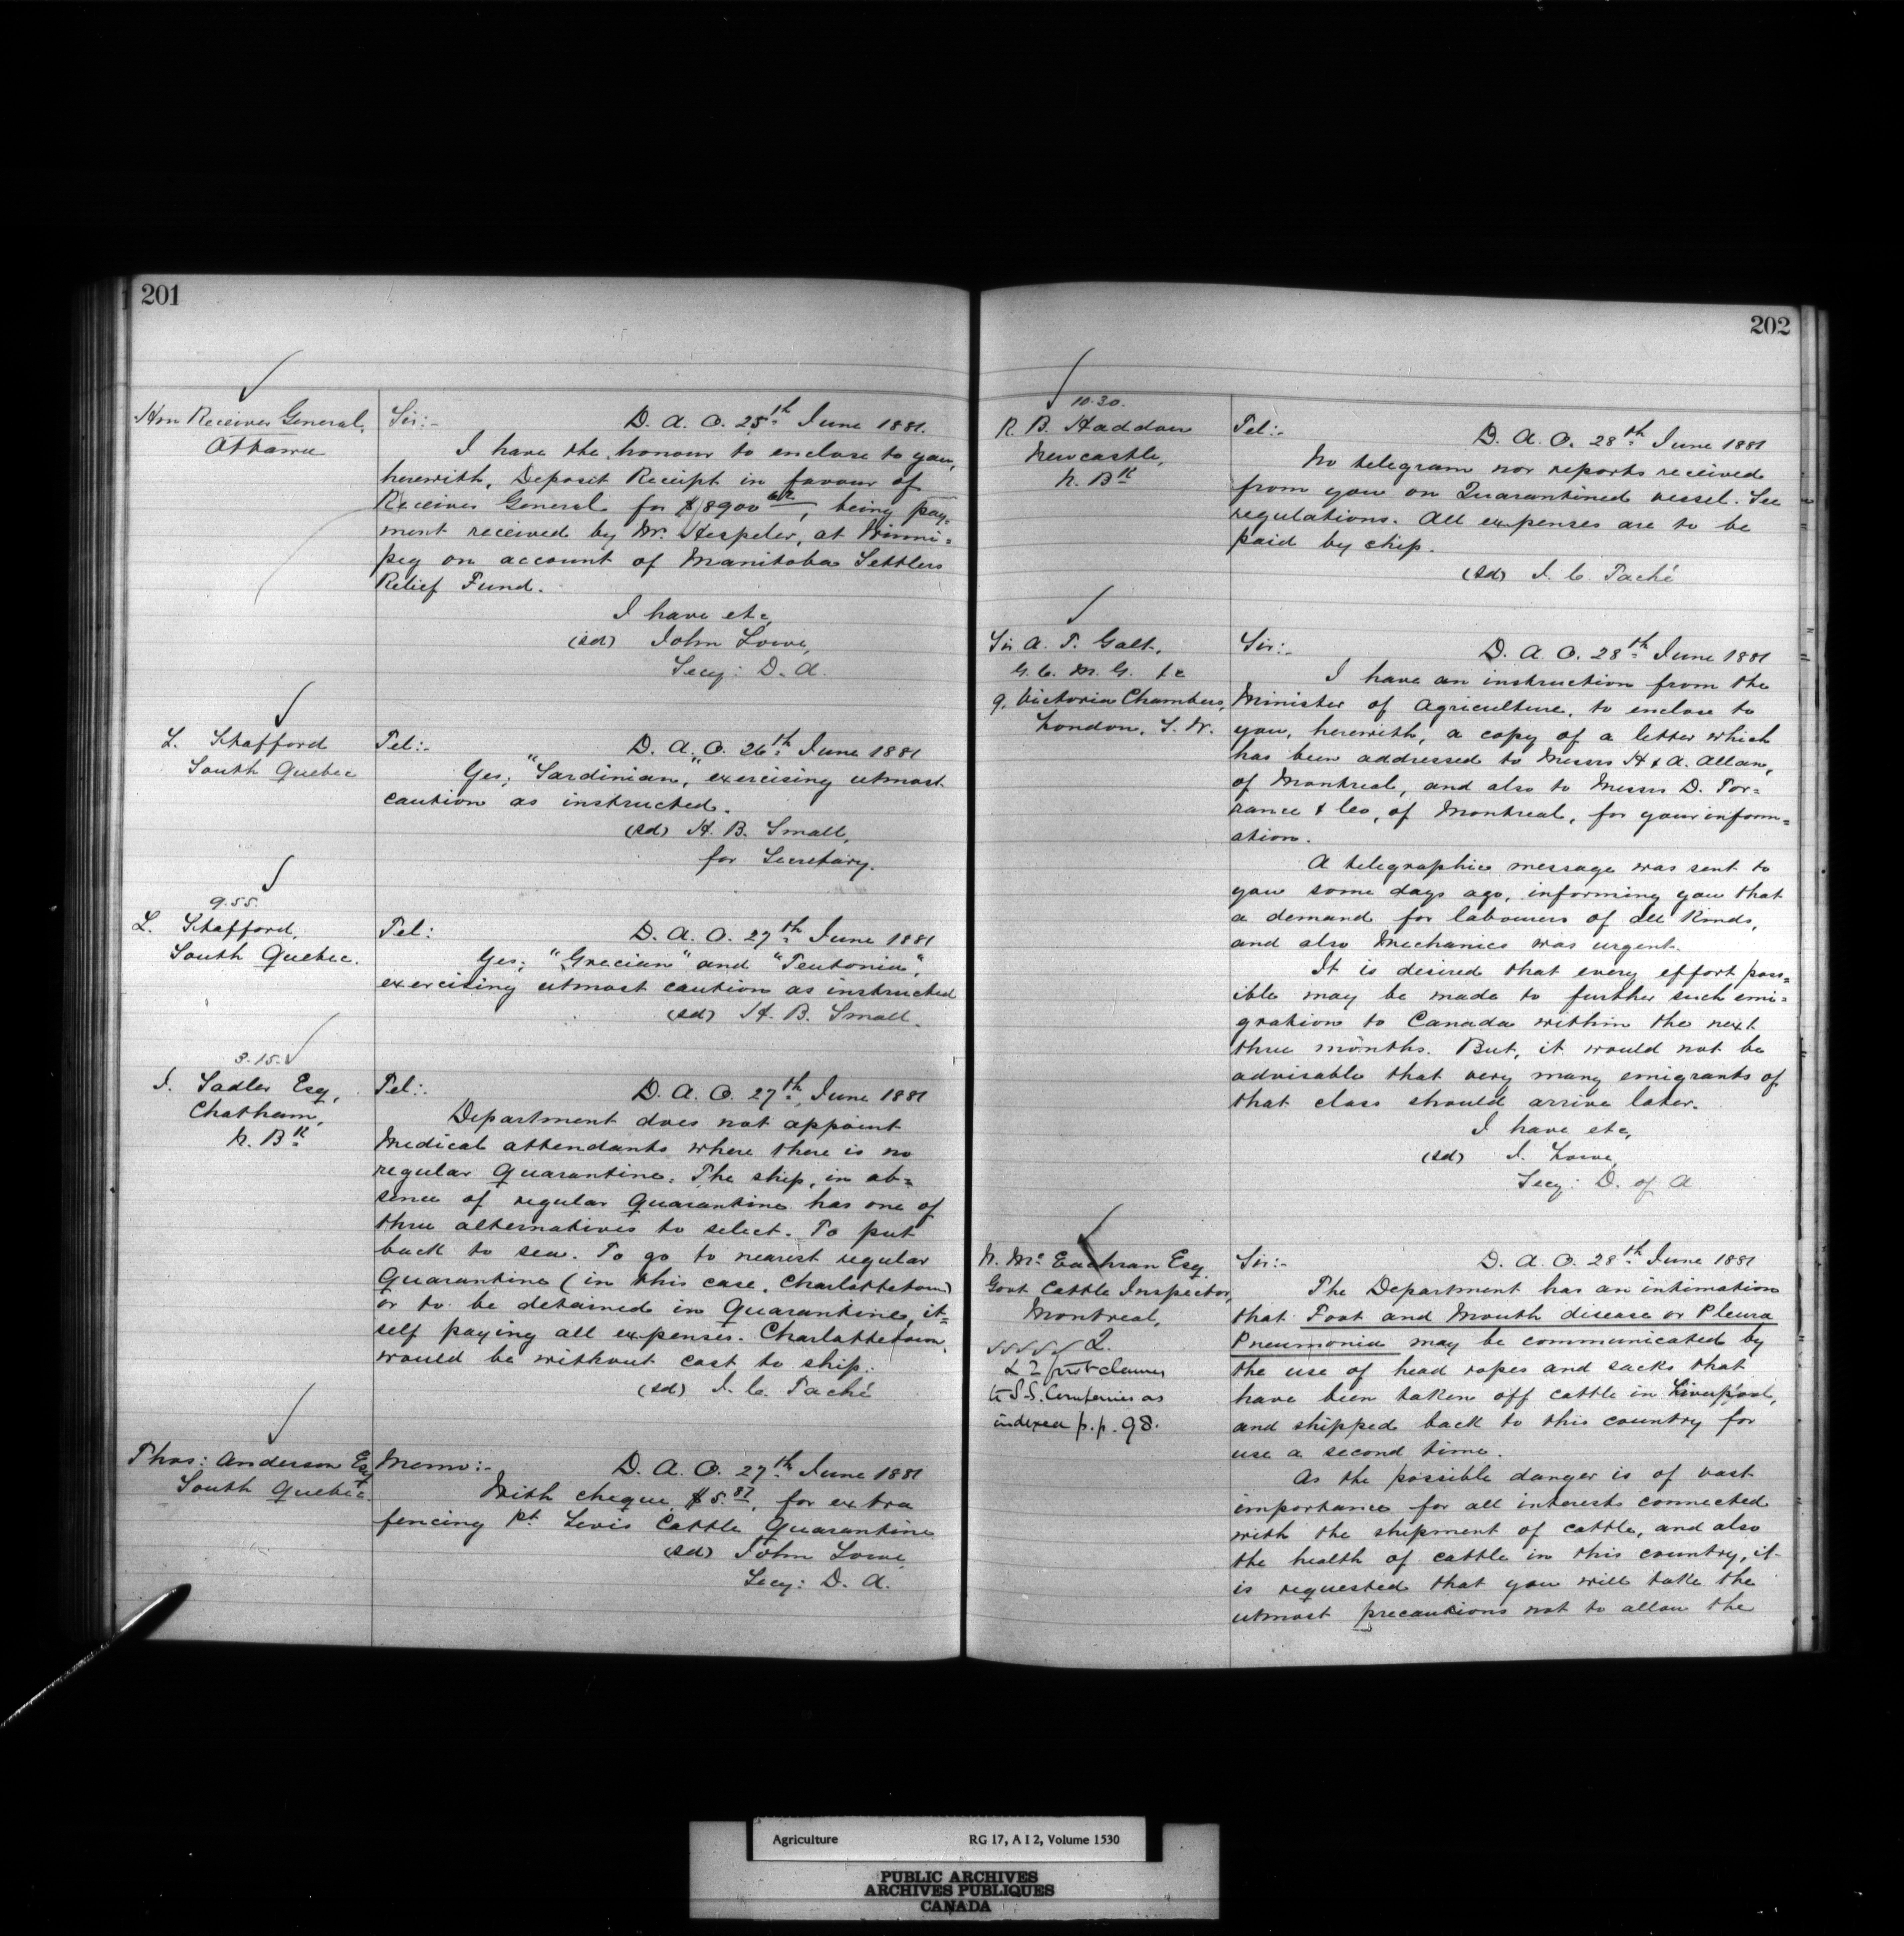 201
Hon Receiver General,
Ottawa
Sir:- D. A. O. 25th June 1881.
I have the honour to enclose to you,
herewith, Deposit Receipt in favour of
Receiver General for $8900, being pay=
ment received by Mr. Hespeler, at Winni=
peg on account of Manitoba Settlers
Relief Fund.
I have etc,
(sd) John Lowe,
Secy: D. A.
L. Stafford
South Quebec
Tel:- D. A. O. 26th June 1881
Yes; "Sardinian," exercising utmost
caution as instructed.
(sd) H. B. Small,
for Secretary.
9.55.
L. Stafford,
South Quebec.
Tel: D. A. O. 27th June 1881
Yes; "Grecian" and "Teutonia",
exercising utmost caution as instructed
(sd) H. B. Small.
3.15.
J. Sadler Esq,
Chatham,
N. Bk
Tel:- D. A. O. 27th June 1881
Department does not appoint
Medical attendants where there is no
regular Quarantine. The ship, in ab=
sence of regular Quarantine has one of
three alternatives to select. To put
back to sea. To go to nearest regular
Quarantine (in this case, Charlottetown)
or to be detained in Quarantine, it=
self paying all expenses. Charlottetown,
would be without cost to ship.
(sd) J. C. Taché
Thos: Anderson Esq
South Quebec.
Memo:- D. A. O. 27th June 1881
With cheque $5.87, for extra
fencing Pt. Levis Cattle Quarantine
(sd) John Lowe
Secy: D. A.
202
10.30.
R. B. Haddow
Newcastle,
N. Bk
Tel:- D. A. O. 28th June 1881
No telegram nor reports received
from you on Quarantined vessel. See
regulations. All expenses are to be
paid by ship.
(sd) J. C. Taché
Sir A. T. Galt,
G. C. M. G. &c
9, Victoria Chambers,
London, S. W.
Sir:- D. A. O. 28th June 1881
I have an instruction from the
Minister of Agriculture, to enclose to
you, herewith, a copy of a letter which
has been addressed to Messrs H & A. Allan,
of Montreal, and also to Messrs D. Tor=
rance & Co, of Montreal, for your inform=
ation.
A telegraphic message was sent to
you some days ago, informing you that
a demand for labourers of all kinds,
and also Mechanics was urgent.
It is desired that every effort poss=
ible may be made to further such emi=
gration to Canada within the next
three months. But, it would not be
advisable that very many emigrants of
that class should arrive later.
I have etc,
(sd) J. Lowe,
Secy: D. of A
Mc Eachran Esq
Govt Cattle Inspector,
Montreal,
2.
& 2 first clauses
to S.S. Companies as
indexed p.p. 98.
Sir:- D. A. O. 28th June 1881
The Department has an intimation
that Foot and Mouth disease or Pleura
Pneumonia may be communicated by
the use of head ropes and sacks that
have been taken off cattle in Liverpool,
and shipped back to this country for
use a second time.
As the possible danger is of vast
importance for all interests connected
with the shipment of cattle, and also
the health of cattle in this country, it
is requested that you will take the
utmost precautions not to allow the
Agriculture RG 17, A I 2, Volume 1530
PUBLIC ARCHIVES
ARCHIVES PUBLIQUES
CANADA